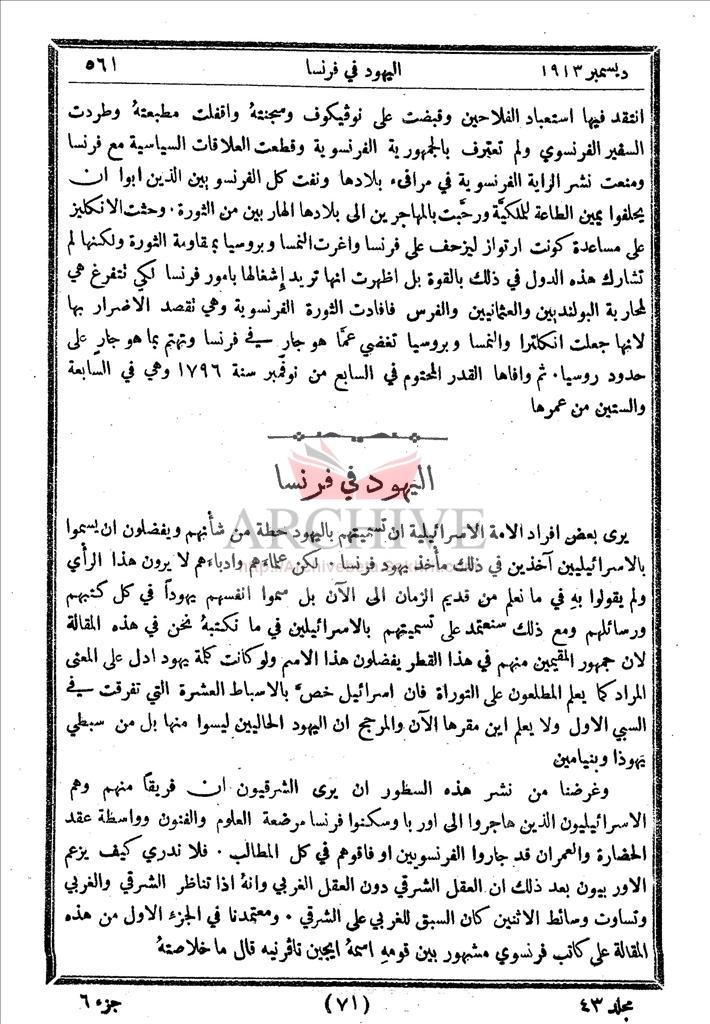 ديسمبر ١٩١٣ اليهود في فرنسا ٥٦١
انتقد فيها استعباد الفلاحين وقبضت على نوڤيكوف وسجنتهُ واقفلت مطبعتهُ وطردت
السفير الفرنسوي ولم تعترف بالجمهورية الفرنسوية وقطعت العلاقات السياسية مع فرنسا
ومنعت نشر الراية الفرنسوية في مرافىء بلادها ونفت كل الفرنسويين الذين ابوا ان
يحلفوا يمين الطاعة للملكيَّة ورحَّبت بالمهاجرين الى بلادها الهاربين من الثورة. وحثت الانكليز
على مساعدة كونت ارتواز ليزحف على فرنسا واغرت النمسا وبروسيا بمقاومة الثورة ولكنها لم
تشارك هذه الدول في ذلك بالقوة بل اظهرت انها تريد إشغالها بامور فرنسا لكي نتفرغ هي
لمحاربة البولنديين والعثمانيين والفرس فافادت الثورة الفرنسوية وهي نقصد الاضرار بها
لانها جعلت انكلترا والنمسا وبروسيا تغضي عمَّا هو جار في فرنسا وتهتم بما هو جار على
حدود روسيا. ثم وافاها القدر المحتوم في السابع من نوڤمبر سنة ١٧٩٦ وهي في السَّابعة
والستين من عمرها
اليهود في فرنسا
ARCHIVE
يرى بعض افراد الامة الاسرائيلية ان تسميتهم باليهود حطة من شأنهم ويفضلون ان يسموا
بالاسرائيليين آخذين في ذلك مأخذ يهود فرنسا. لكن علماءهم وادباءهم لا يرون هذا الرأي
ولم يقولوا بهِ في ما نعلم من قديم الزمان الى الآن بل سموا انفسهم يهوداً في كل كتبهم
ورسائلهم ومع ذلك سنعتمد على تسميتهم بالاسرائيلين في ما نكتبهُ نحن في هذه المقالة
لان جمهور المقيمين منهم في هذا القطر يفضلون هذا الاسم ولو كانت كلمة يهود ادل على المعنى
المراد كما يعلم المطلعون على التوراة فان اسرائيل خصَّ بالاسباط العشرة التي تفرقت في
السبي الاول ولا يعلم اين مقرها الآن والمرجح ان اليهود الحاليين ليسوا منها بل من سبطي
يهوذا وبنيامين
وغرضنا من نشر هذه السطور ان يرى الشرقيون ان فريقاً منهم وهم
الاسرائيليون الذين هاجروا الى اوربا وسكنوا فرنسا مرضعة العلوم والفنون وواسطة عقد
الحضارة والعمران قد جاروا الفرنسويين او فاقوهم في كل المطالب. فلا ندري كيف يزعم
الاوربيون بعد ذلك ان العقل الشرقي دون العقل الغربي وانهُ اذا تناظر الشرقي والغربي
وتساوت وسائط الاثنين كان السبق للغربي على الشرقي. ومعتمدنا في الجزء الاول من هذه
المقالة على كاتب فرنسوي مشهور بين قومهِ اسمهُ ايجين تاڤرنيه قال ما خلاصتهُ
مجلد ٤٣ (٧١) جزء ٦